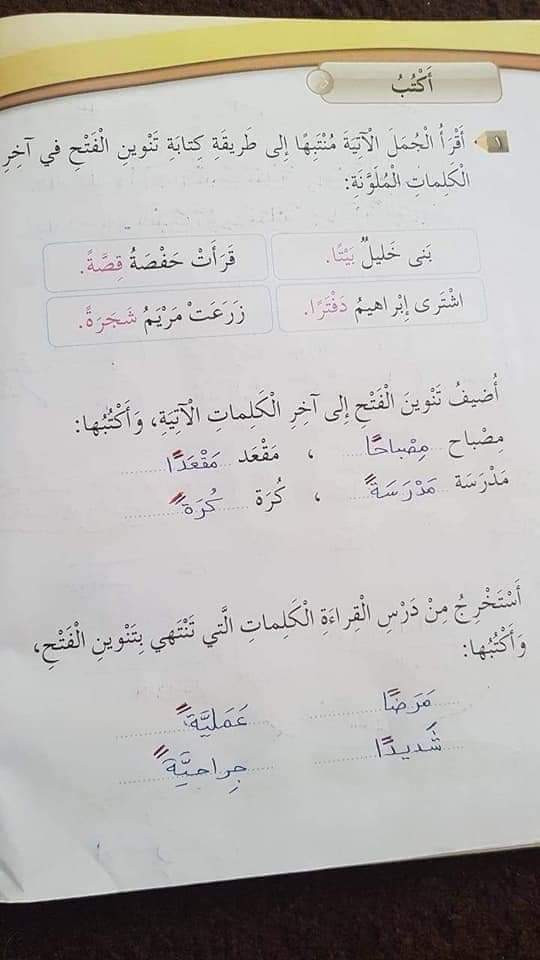 أَكْتُبُ
١ أَقْرَأُ الْجُمَلَ الْآتِيَةَ مُنْتَبِهًا إِلى طَريقَةِ كِتابَةِ تَنْوينِ الْفَتْحِ في آخِرِ
الْكَلِماتِ الْمُلَوَّنَةِ:
بَنى خَليلٌ بَيْتًا. قَرَأَتْ حَفْصَةُ قِصَّةً.
اشْتَرى إِبْراهيمُ دَفْتَرًا. زَرَعَتْ مَرْيَمُ شَجَرَةً.
أُضيفُ تَنْوينَ الْفَتْحِ إِلى آخِرِ الْكَلِماتِ الْآتِيَةِ، وَأَكْتُبُها:
مِصْباح مِصْباحًا ، مَقْعَد مَقْعَدًا
مَدْرَسَة مَدْرَسَةً ، كُرَة كُرَةً
أَسْتَخْرِجُ مِنْ دَرْسِ الْقِراءَةِ الْكَلِماتِ الَّتي تَنْتَهي بِتَنْوينِ الْفَتْحِ،
وَأَكْتُبُها:
مَرَضًا عَمَليَّةً
شَديدًا جِراحيَّةً